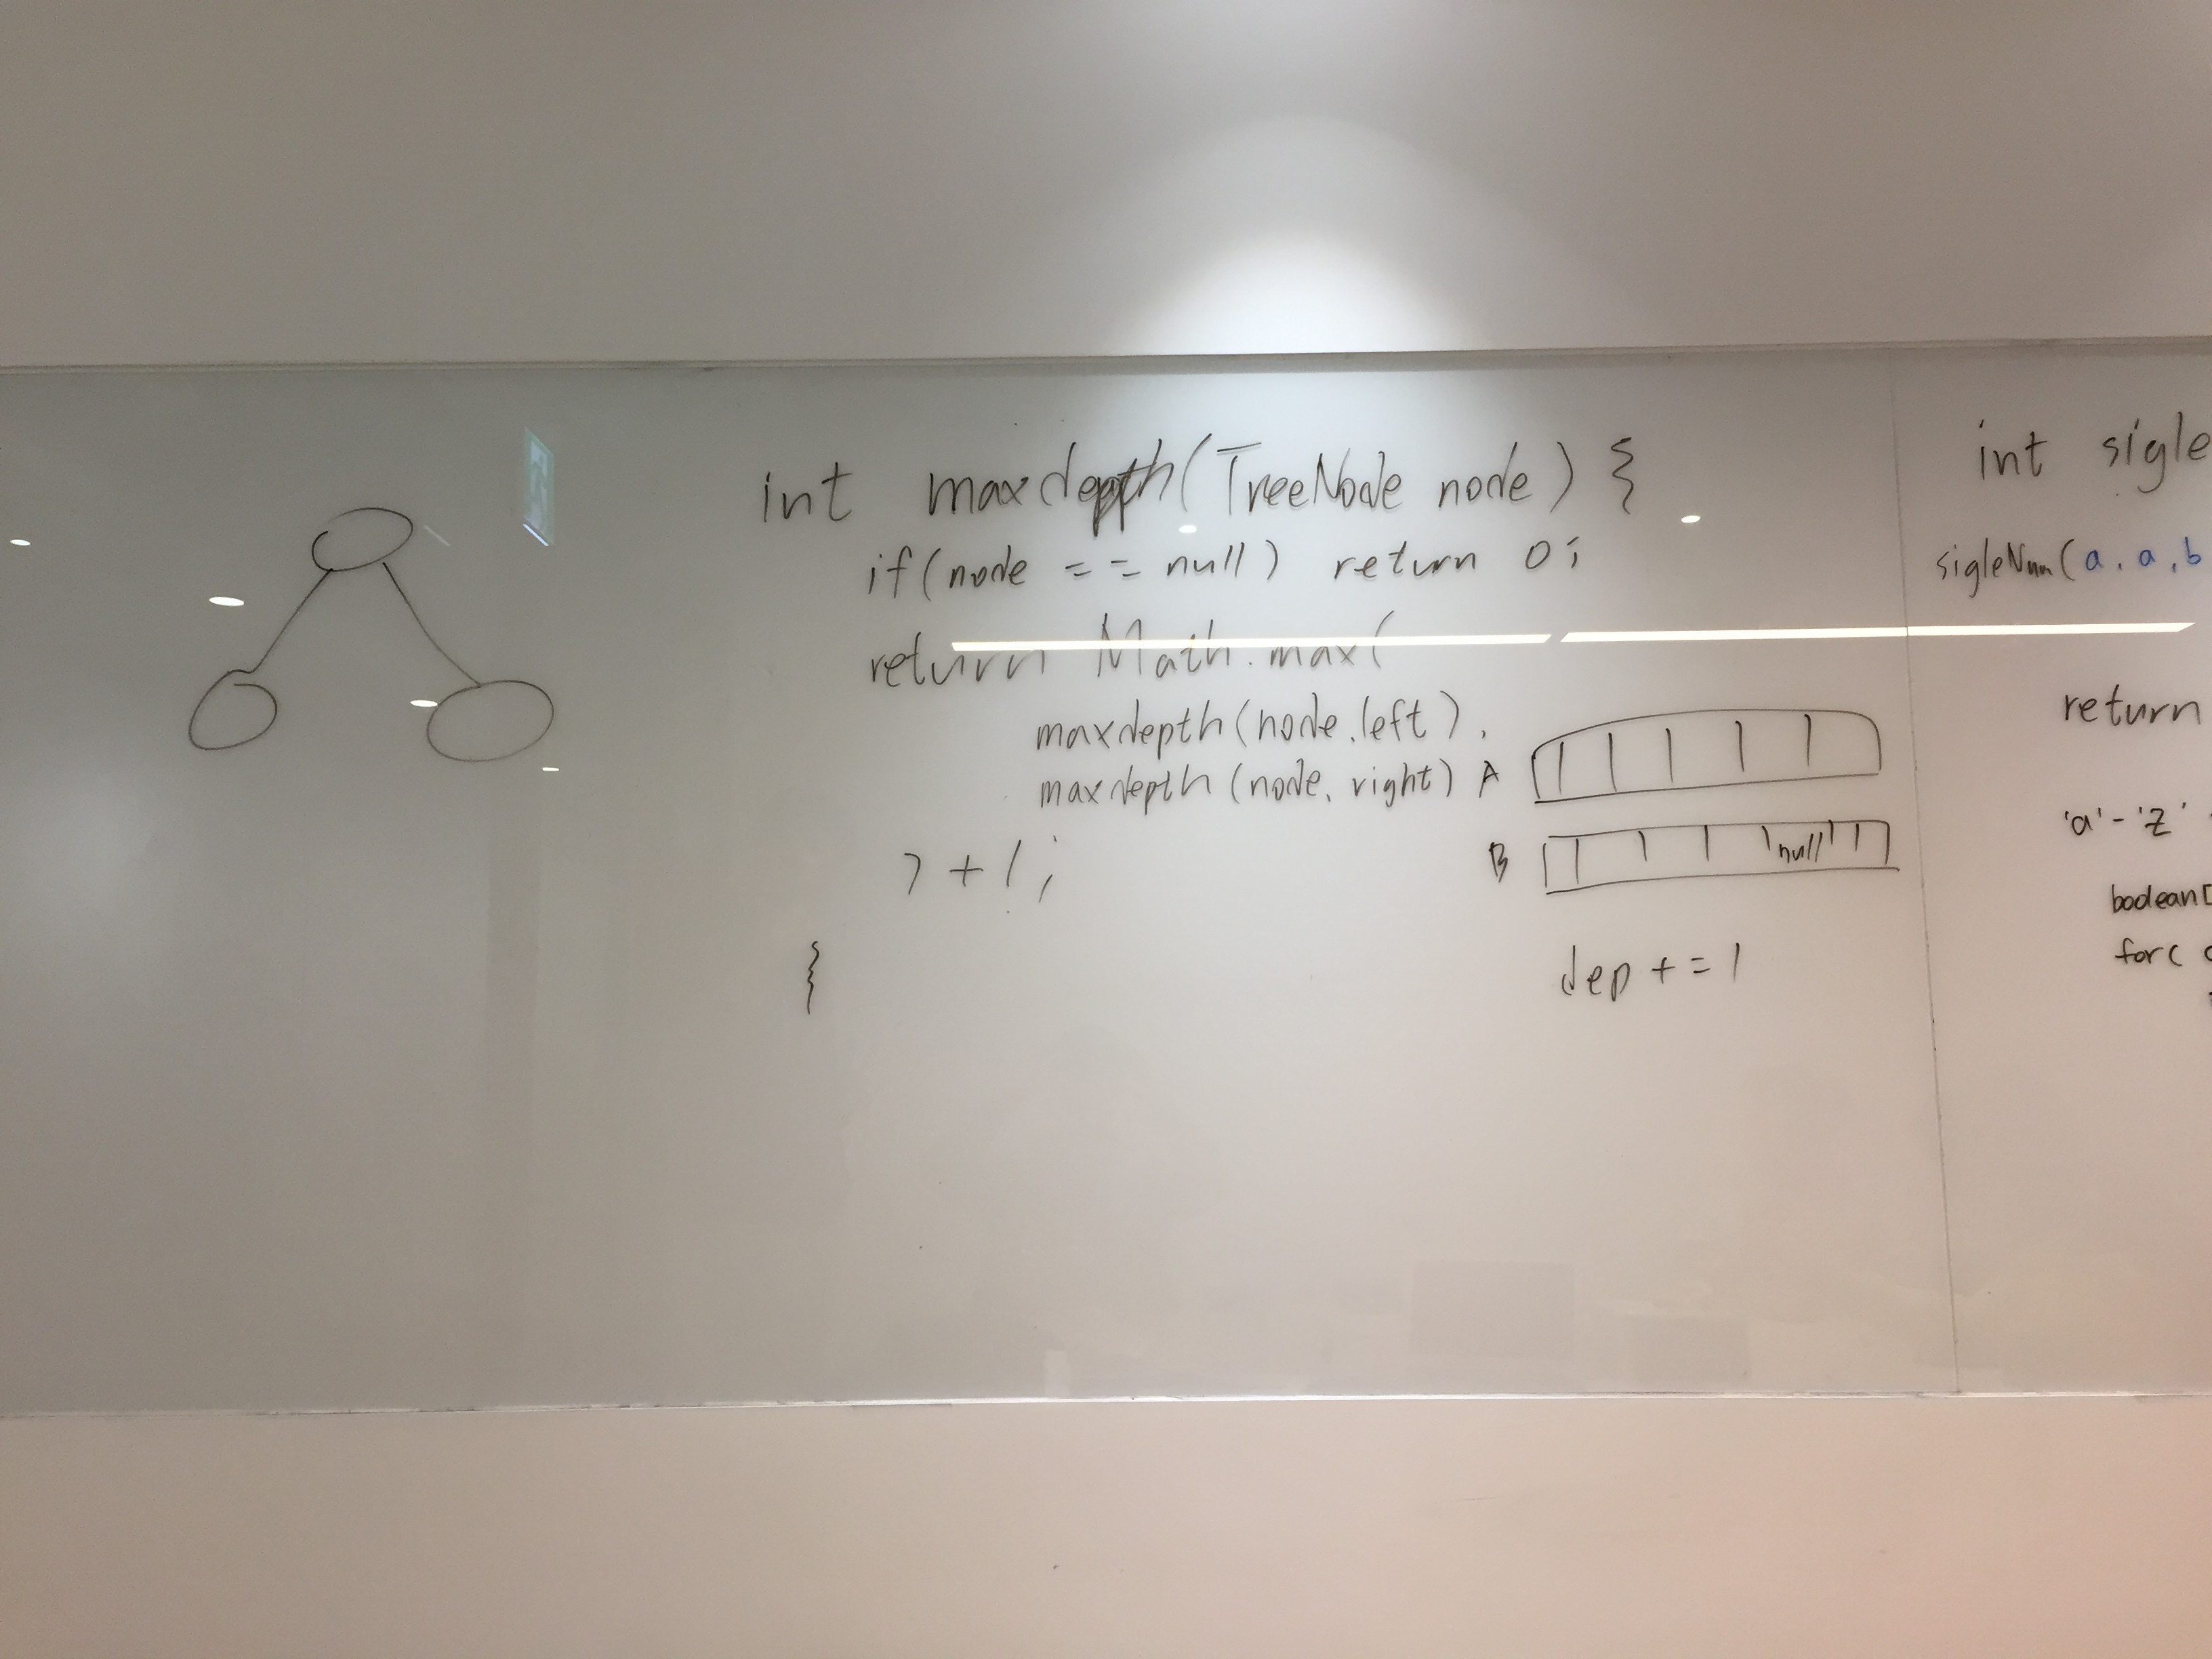 int maxdepth(TreeNode node) {
if(node == null) return 0;
return Math.max(
maxdepth(node.left),
maxdepth(node.right)
) + 1;
}
A
B null
dep += 1
int sigle
sigleNum(a, a, b
return
'a' - 'z'
boolean[
for(